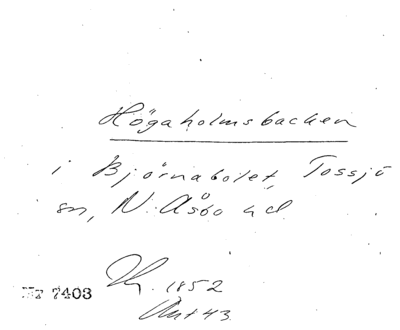 Högaholmsbacken
i Björnabolet, Tossjö
sn, N. Åsbo hd.
1852
MF 7403